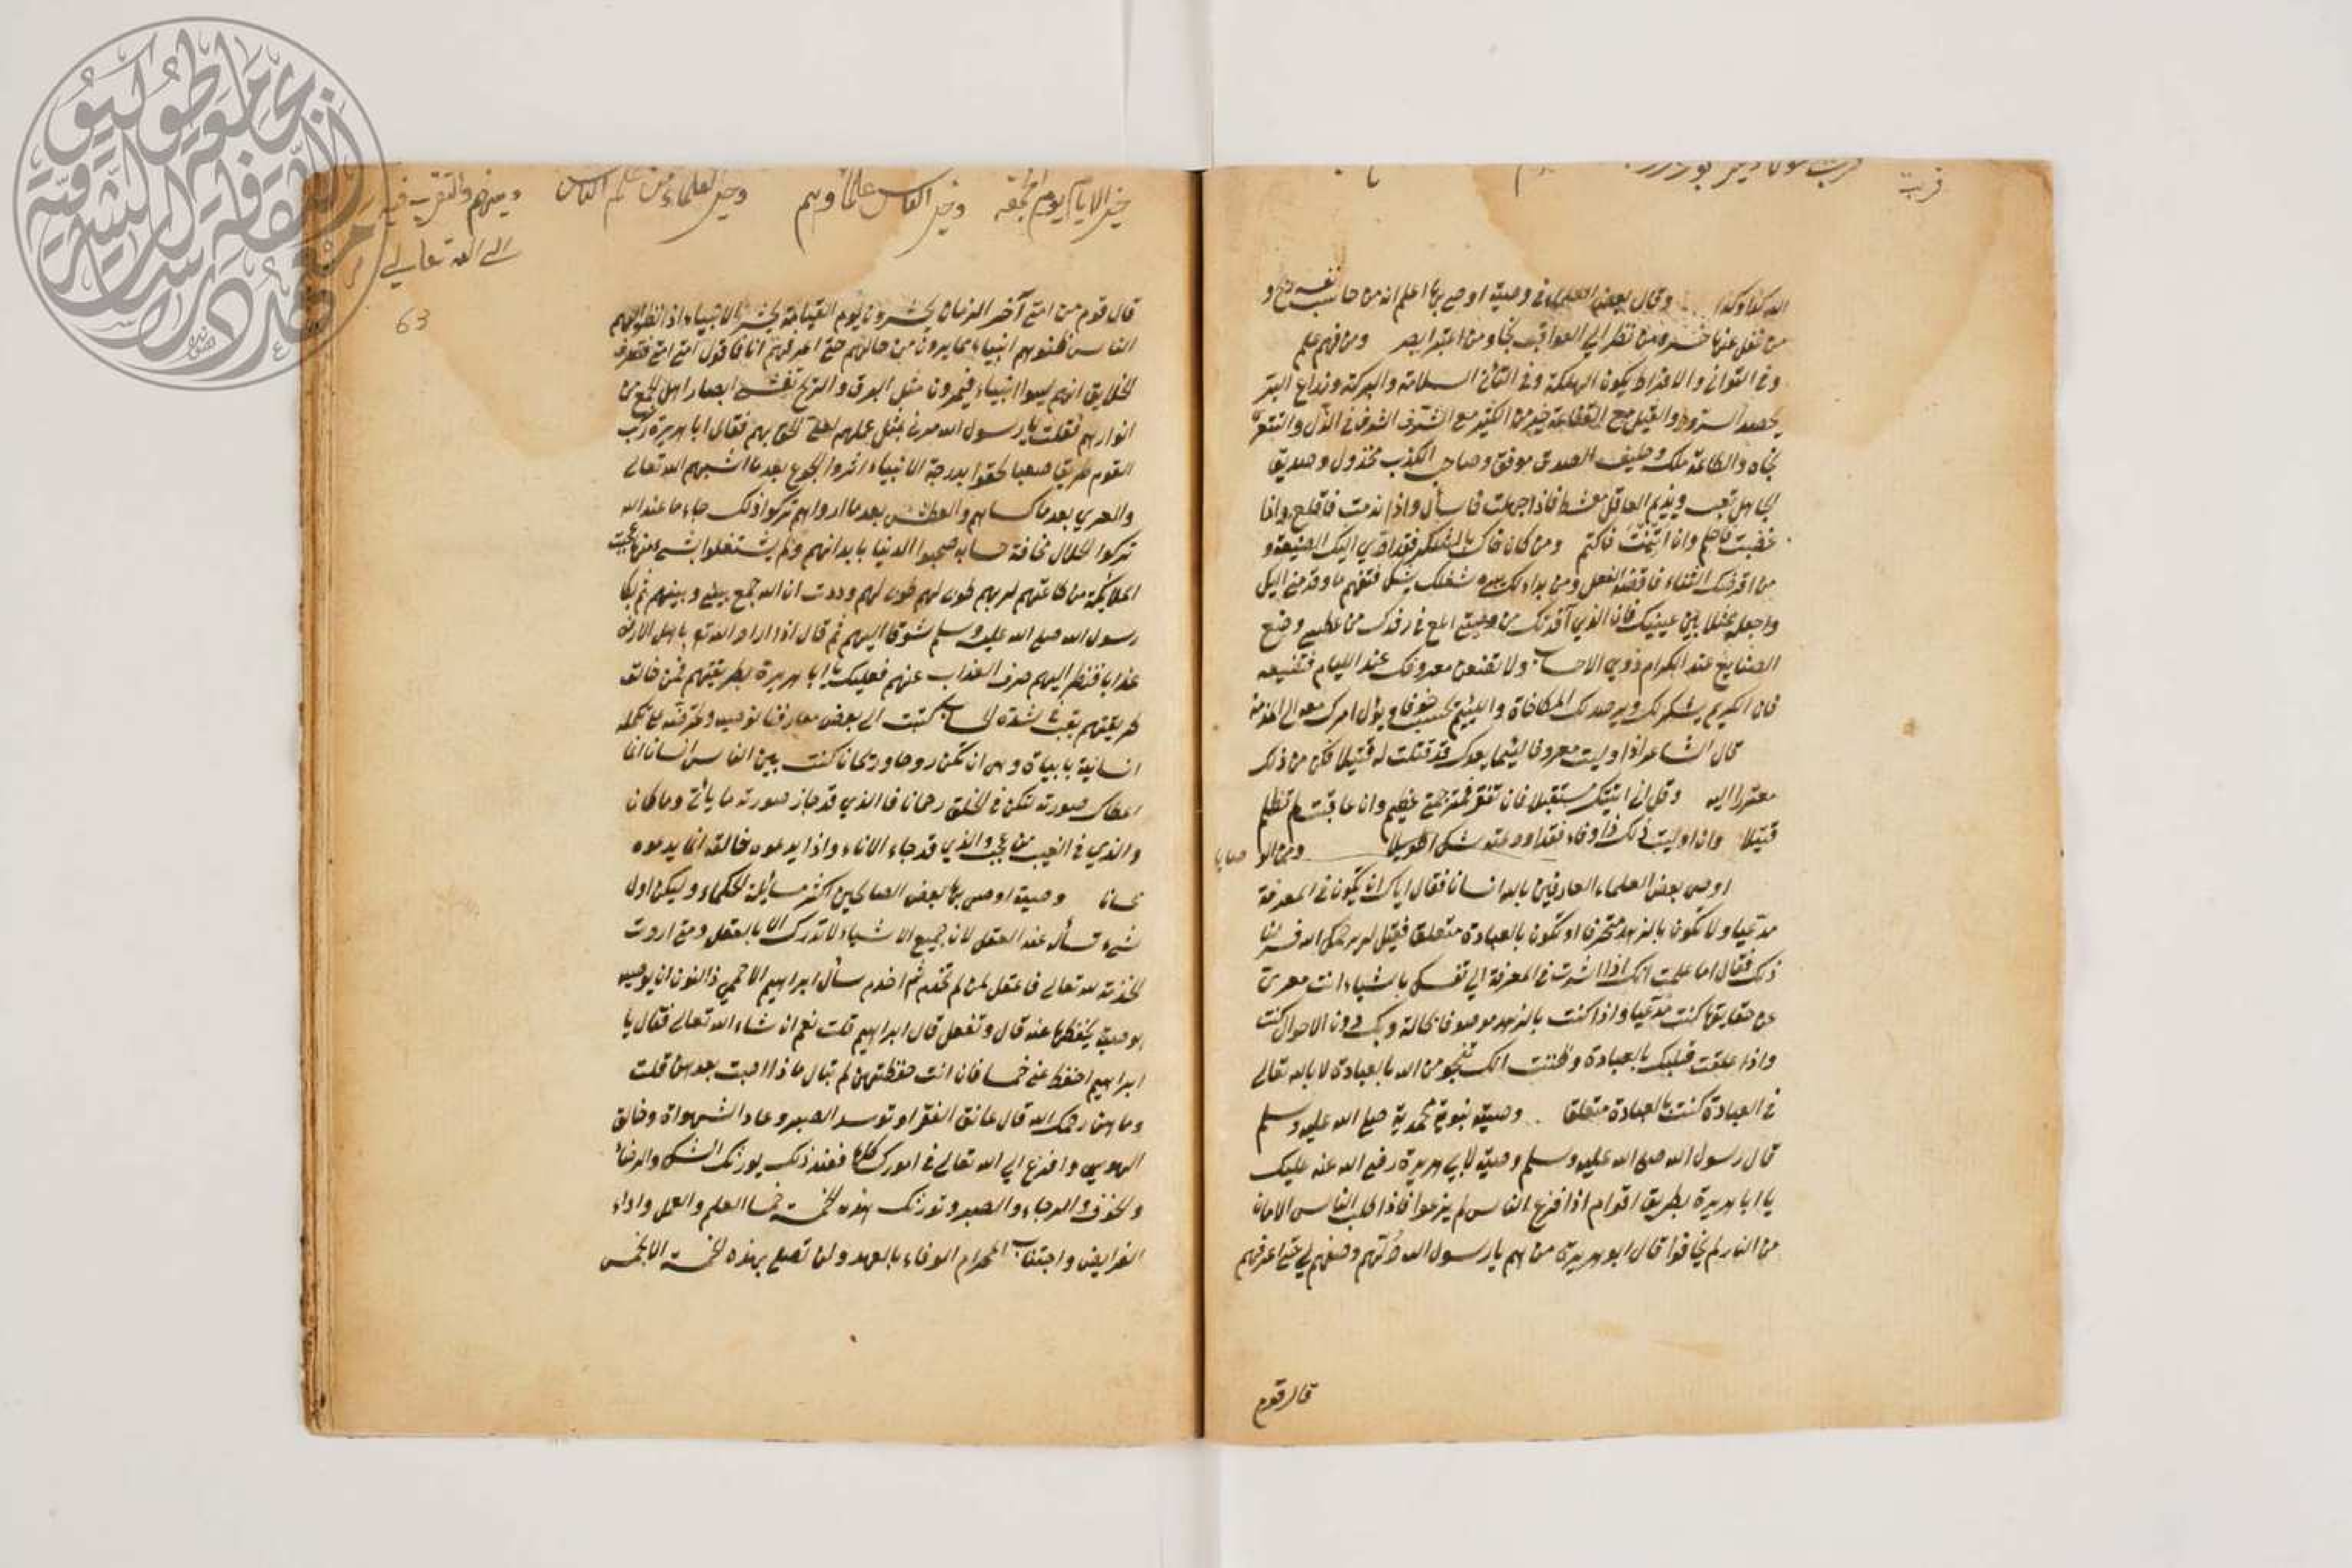 قربت
الله كذا وكذا وقال بعض العلماء في وصية اوصى بها اعلم انه من حاسب نفسه ربح و
من غفل عنها خسر ومن نظر الى العواقب نجا ومن اعتبر ابصر ومن فهم علم
وفي التواني والافراط يكون الهلكة وفي التأني السلامة والبركة وزراع البر
يحصد السرور والقليل مع القناعة خير من الكثير مع السرف الشرف في الذل والتقوى
نجاه والطاعة ملك وحليف الصدق موفق وصاحب الكذب مخذول وصديق
الجاهل تعب ونديم العاقل مغتبط فاذا جهلت فاسأل واذا ندمت فاقلع واذا
غضبت فاحلم وان ائتمنت فاكتم ومن كافاك بالشكر فقد ادى اليك الصنيعة و
من اقرضك الثناء فاقضه الفعل ومن بداك ببره شغلك بشكره فتفهم ما وقد مني اليك
واجعله مثلا بين عينيك فان الذي آفدتك من وصيتي ابلغ في رفدك من عطيتي وضع
الصنايع عند الكرام ذوي الاحساب ولا تضعن معروفك عند الليام فتضيعه
فان الكريم يشكر لك ويرصد لك المكافاة واللئيم يحسبه خوفا ويؤل امرك معه الى المذمة
قال الشاعر اذا اوليت معروفا ليئما يعدك قد قتلت له قتيلا فكن من ذلك
معتذرا اليه وقل اني اتيتك مستقيلا فان تغفر فمجترمي عظيم وان عاقبت لم تظلم
قتيلا وان اوليت ذلك ذا وفاء فقد اودعته شكرا طويلا ومن الوصايا
اوصى بعض العلماء العارفين بالله انسانا فقال اياك ان تكون في المعرفة
مدعيا ولا تكون بالزهد متحرفا او تكون بالعبادة متعلقا فقيل له يرحمك الله فسر لنا
ذلك فقال اما علمت انك اذا اشرت في المعرفة الى نفسك باشياء انت معرى
عن حقايقها كنت مدعيا واذا كنت بالزهد موصوفا بحالة وبك دون الاحوال كنت
واذا علقت قلبك بالعبادة وظننت انك تنجو من الله بالعبادة لا بالله تعالى
في العبادة كنت بالعبادة متعلقا وصية نبوية محمدية صلى الله عليه وسلم
قال رسول الله صلى الله عليه وسلم وصية لابي هريرة رضي الله عنه عليك
يا ابا هريرة بطريق اقوام اذا فزع الناس لم يفزعوا فاذا طلب الناس الامان
من النار لم يخافوا قال ابو هريرة من هم يا رسول الله حلهم وصفهم لي حتى اعرفهم
قال قوم
خير الايام يوم الجمعة وخير الناس علماؤهم وخير العلماء من علم الناس دينهم والتقرب فيه
الى الله تعالى
63
قال قوم من امتي آخر الزمان يحشرون يوم القيامة يحشر الانبياء اذا نظر اليهم
الناس ظنوهم انبياء مما يرون من حالهم حتى اعرفهم انا فاقول امتي امتي فتعرف
الخلايق انهم ليسوا انبياء فيمرون مثل البرق والريح تغشى ابصار اهل الجمع من
انوارهم فقلت يا رسول الله مرني بمثل عملهم لعلي الحق بهم فقال ابا هريرة ركب
القوم طريقا صعبا لحقوا بدرجة الانبياء اثروا الجوع بعد ما اشبعهم الله تعالى
والعري بعد ما كساهم والعطش بعد ما ارواهم تركوا ذلك جاء ما عند الله
تركوا الحلال مخافة حسابه صحبوا الدنيا بابدانهم ولم يشتغلوا بشيء منها عجبت
الملايكة من طاعتهم لربهم طوبى لهم طوبى لهم وددت ان الله جمع بيني وبينهم ثم بكا
رسول الله صلى الله عليه وسلم شوقا اليهم ثم قال اذا اراد الله تع باهل الارض
عذابا فنظر اليهم صرف العذاب عنهم فعليك يا ابا هريرة بطريقتهم فمن خالف
طريقتهم تعب بشدة الحساب كتبت الى بعض معارفنا توصيه
انسانية بابياة وهي ان تكن روحا وريحانا كنت بين الناس انسانا انما
اعطاك صورته لتكن في الخلق رحمانا فالذي قد حاز صورته ما يأتي وما كان
والذي في الغيب من عجب والذي قد جاء الاناء واذا يدعوه خالقه انما يدعوه
وصية اوصى بها بعض الصالحين اكثر مسائلة الحكماء وليكن اول
شيء تسأل عنه العقل لان جميع الاشياء لا تدرك الا بالعقل ومتى اردت
الخدمة لله تعالى فاعقل لمن لم تخدم ثم اخدم سأل ابراهيم الاخميمي ذا النون ان يوصيه
بوصية يحفظها عنه قال وتفعل قال ابراهيم قلت نعم ان شاء الله تعالى فقال يا
ابراهيم احفظ عني خمسا فان انت حفظتهن لم تبال ماذا اصبت بعدهن قلت
وما هن رحمك الله قال عانق الفقر او توسد الصبر وعاد الشهواة وخالف
الهوى وافزع الى الله تعالى في امورك كلها فعند ذلك يورثك الشكر والرضا
والخوف والرجاء والصبر وتورثك هذه الخمسة خمسا العلم والعمل واداء
الفرايض واجتناب المحارم الوفاء بالعهد ولن تصل بهذه الخمسة الا بخمس